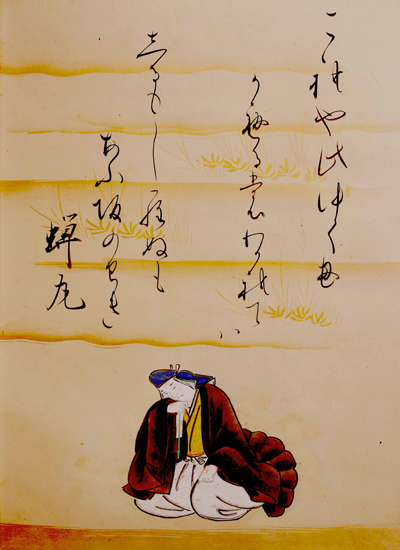 これや此ゆくも
かへるもわかれては
しるもしらぬも
あふ坂のせき
蝉丸